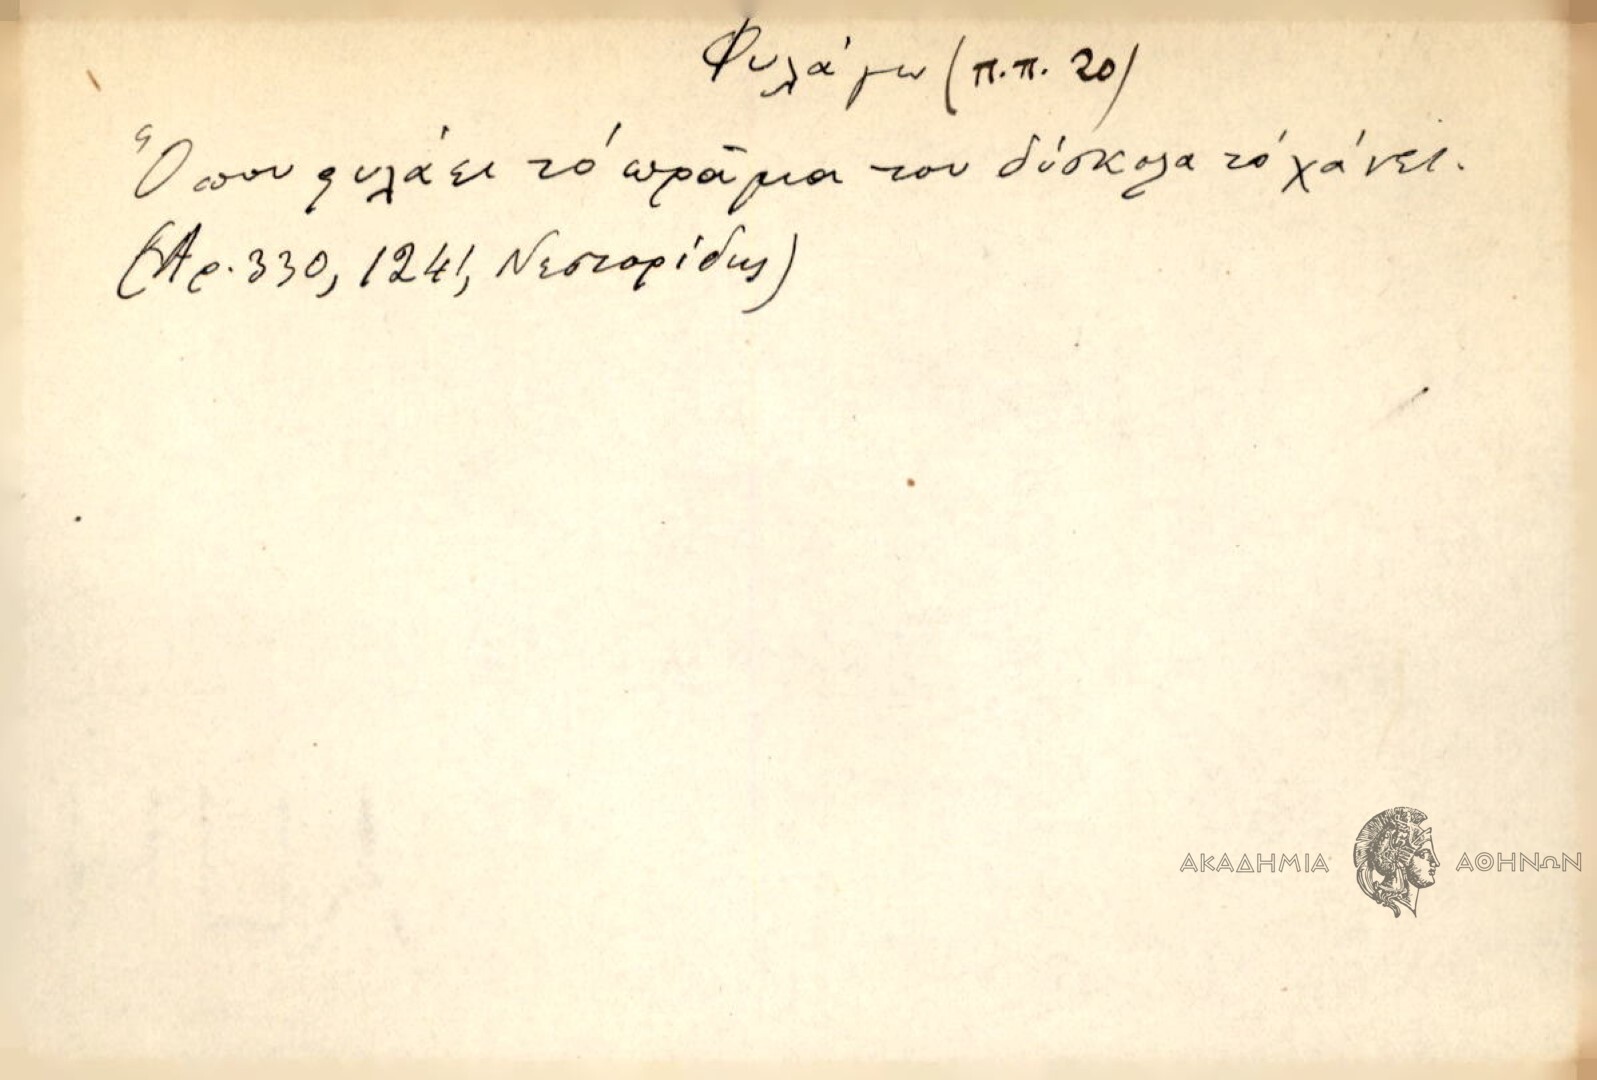 Φυλάγω (π.π. 20)
Ὅπου φυλάει τό πρᾶμα του δύσκολα τό χάνει.
(Ἀρ. 330, 1241, Νεστορίδης)
ΑΚΑΔΗΜΙΑ ΑΘΗΝΩΝ